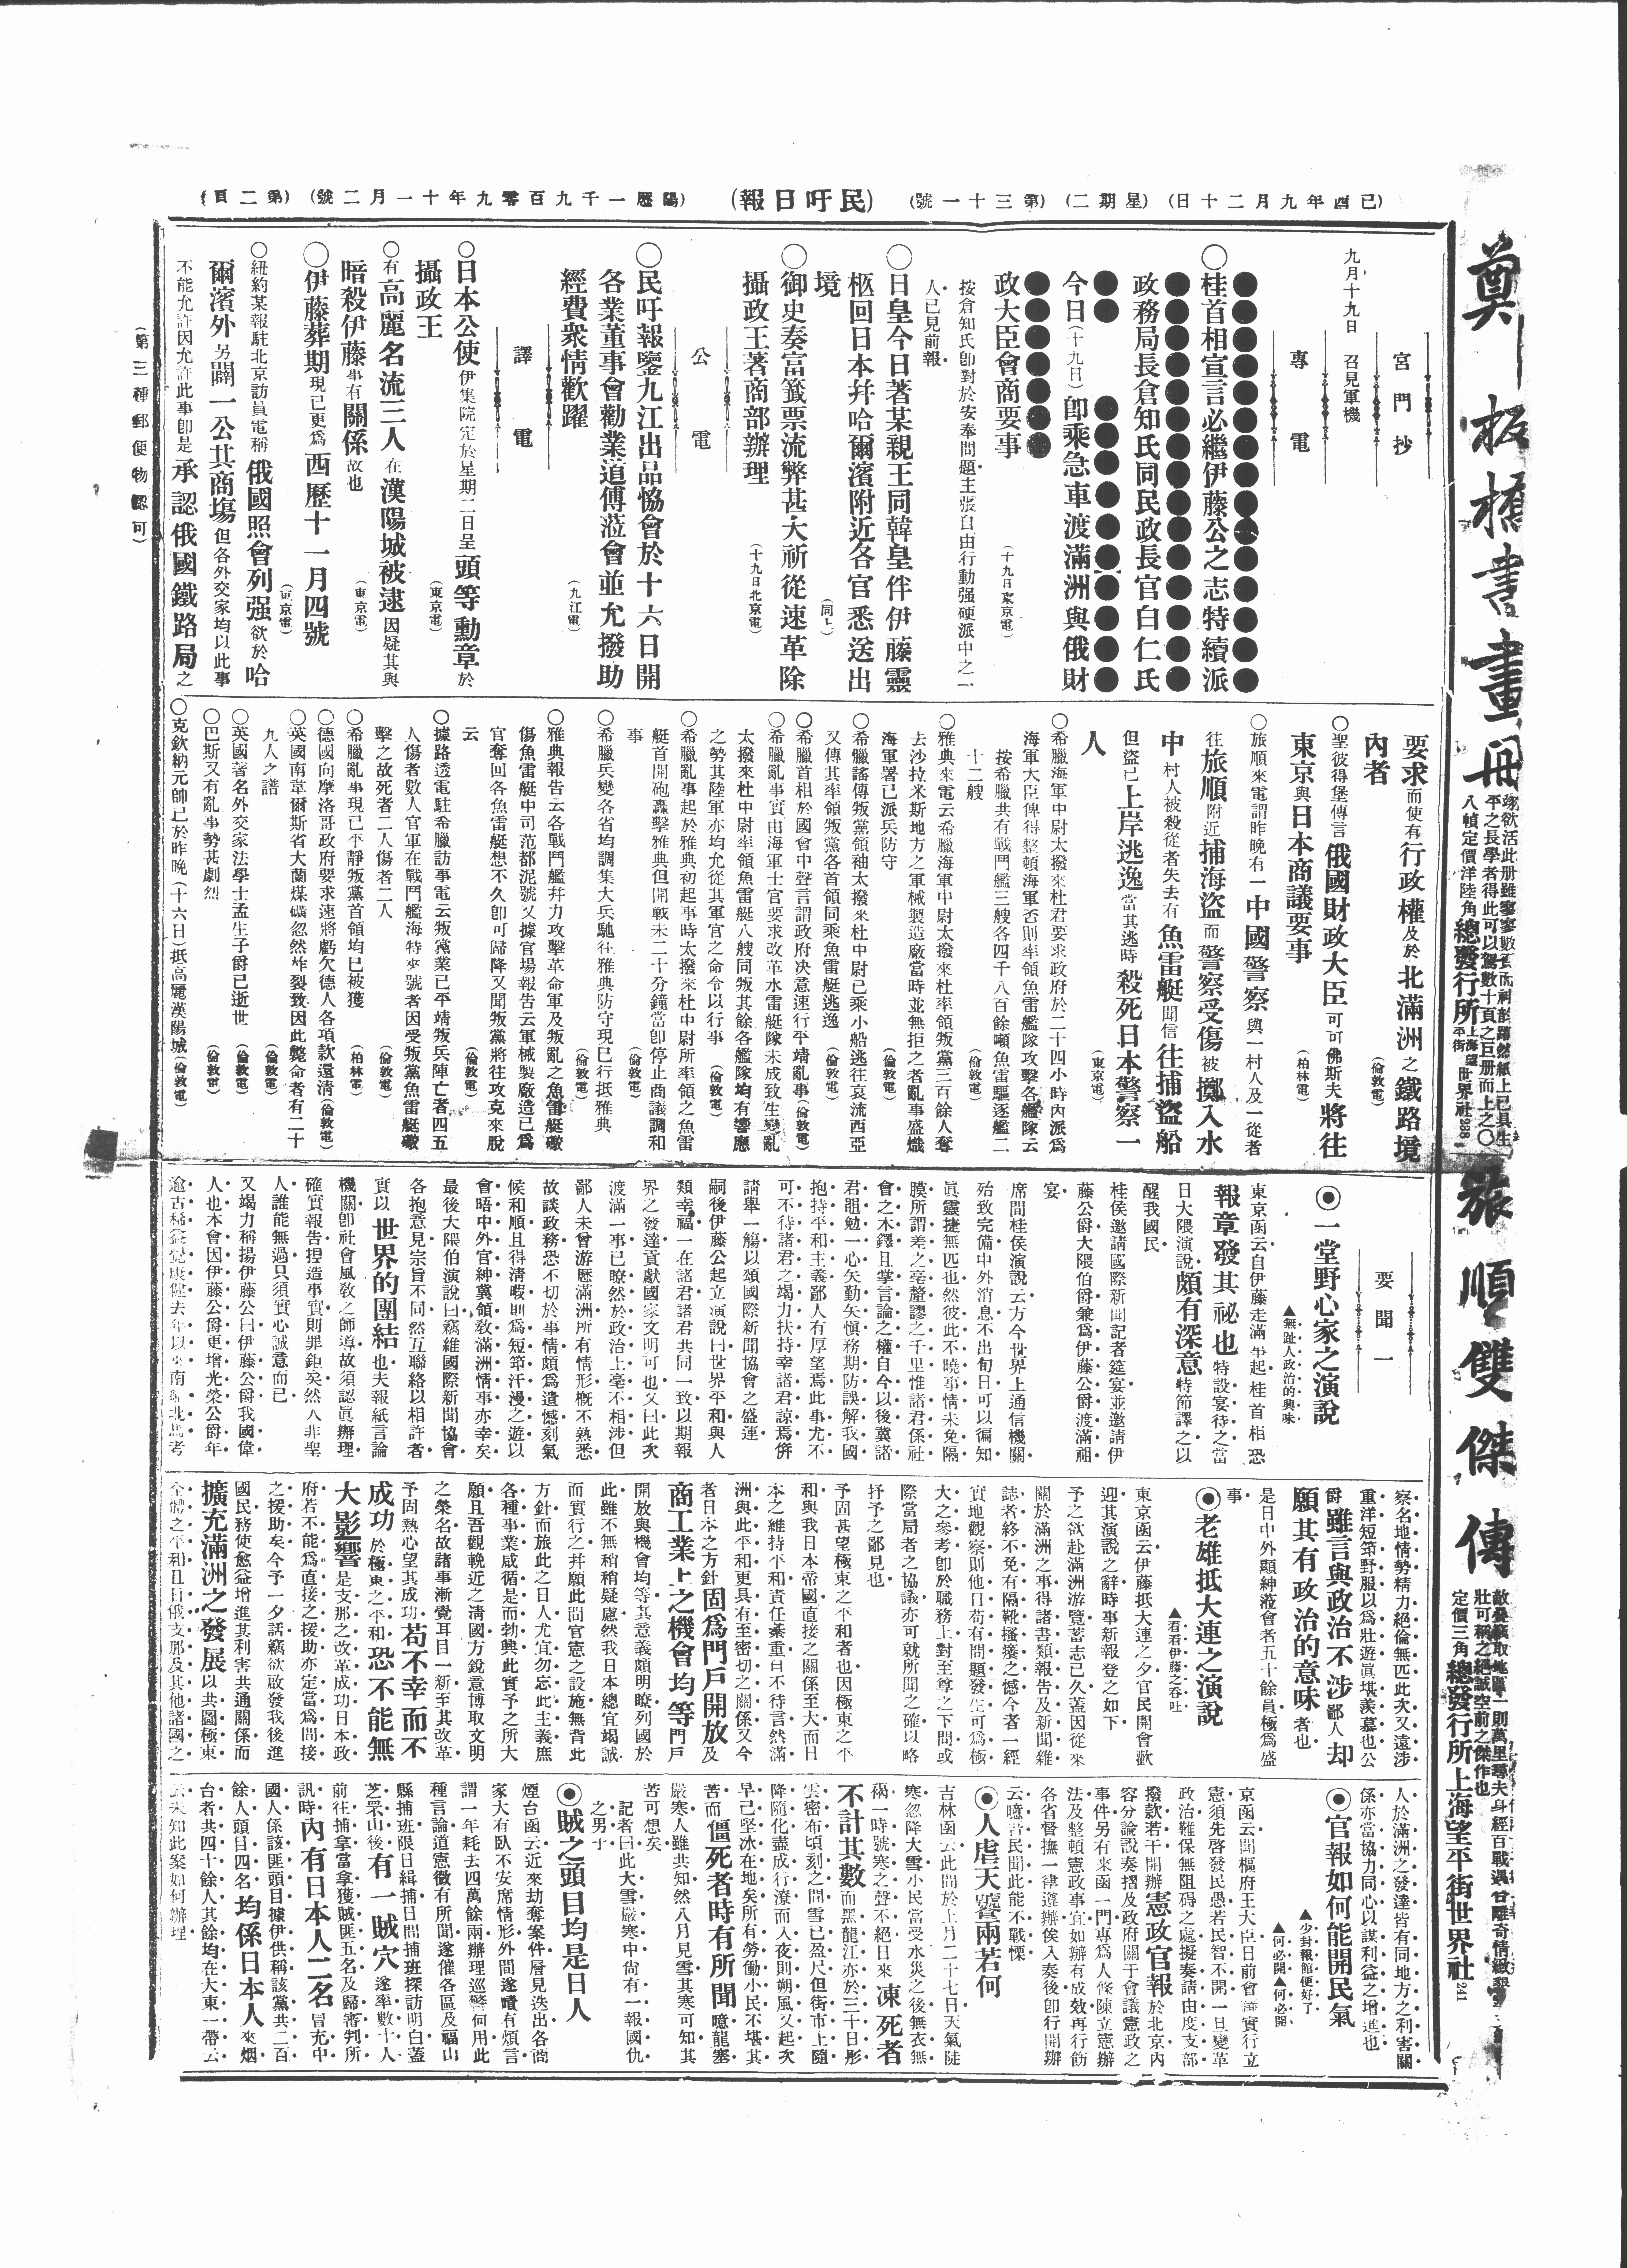 (已酉年九月二十日) (星期二) (第三十一號) (民吁日報) (陽曆一千九百零九年十一月二號) (第二頁)
鄭板橋書畫册
總發行所 上海望平街 世界社 298
旅順雙傑傳
定價三角 總發行所上海望平街世界社 241
宮門抄
九月十九日 召見軍機
專電
〇桂首相宣言必繼伊藤公之志特續派
政務局長倉知氏同民政長官白仁氏
今日(十九日)卽乘急車渡滿洲與俄財
政大臣會商要事 (十九日東京電)
按倉知氏卽對於安奉問題主張自由行動强硬派中之一
人已見前報
〇日皇今日著某親王同韓皇伴伊藤靈
柩回日本幷哈爾濱附近各官悉送出
境 (同上)
〇御史奏富籤票流弊甚大祈從速革除
攝政王著商部辦理 (十九日北京電)
公電
〇民吁報鑒九江出品恊會於十六日開
各業董事會勸業道傅蒞會並允撥助
經費衆情歡躍 (九江電)
譯電
〇日本公使伊集院定於星期二日呈頭等勳章於
攝政王 (東京電)
〇有高麗名流三人在漢陽城被逮因疑其與
暗殺伊藤事有關係故也 (東京電)
〇伊藤葬期現已更爲西歷十一月四號 (東京電)
〇紐約某報駐北京訪員電稱俄國照會列强欲於哈
爾濱外另闢一公共商塲但各外交家均以此事
不能允許因允許此事卽是承認俄國鐵路局之
要求而使有行政權及於北滿洲之鐵路境
內者 (倫敦電)
〇聖彼得堡傳言俄國財政大臣可可佛斯夫將往
東京與日本商議要事 (柏林電)
〇旅順來電謂昨晚有一中國警察與一村人及一從者
往旅順附近捕海盜而警察受傷被擲入水
中村人被殺從者失去有魚雷艇聞信往捕盜船
但盜已上岸逃逸當其逃時殺死日本警察一
人 (東京電)
〇希臘海軍中尉太撥來杜君要求政府於二十四小時內派爲
海軍大臣俾得整頓海軍否則率領魚雷艦隊攻擊各艦隊云
按希臘共有戰鬥艦三艘各四千八百餘噸魚雷驅逐艦二
十二艘 (倫敦電)
〇雅典來電云希臘海軍中尉太撥來杜率領叛黨三百餘人奪
去沙拉米斯地方之軍械製造廠當時並無拒之者亂事盛熾
海軍署已派兵防守 (倫敦電)
〇希臘謠傳叛黨領袖太撥來杜中尉已乘小船逃往哀流西亞
又傳其率領叛黨各首領同乘魚雷艇逃逸 (倫敦電)
〇希臘首相於國會中聲言謂政府决意速行平靖亂事(倫敦電)
〇希臘亂事實由海軍士官要求改革水雷艇隊未成致生變亂
太撥來杜中尉率領魚雷艇八艘同叛其餘各艦隊均有響應
之勢其陸軍亦均允從其軍官之命令以行事 (倫敦電)
〇希臘亂事起於雅典初起事時太撥來杜中尉所率領之魚雷
艇首開砲轟擊雅典但開戰未二十分鐘當卽停止商議調和
事 (倫敦電)
〇希臘兵變各省均調集大兵馳往雅典防守現已行抵雅典 (倫敦電)
〇雅典報告云各戰鬥艦幷力攻擊革命軍及叛亂之魚雷艇礮
傷魚雷艇中司范都泥號又據官塲報告云軍械製廠造已爲
官奪回各魚雷艇想不久卽可歸降又聞叛黨將往攻克來脫
云 (倫敦電)
〇據路透電駐希臘訪事電云叛黨業已平靖叛兵陣亡者四五
人傷者數人官軍在戰鬥艦海特字號者因受叛黨魚雷艇礮
擊之故死者二人傷者二人 (倫敦電)
〇希臘亂事現已平靜叛黨首領均已被獲 (柏林電)
〇德國向摩洛哥政府要求速將虧欠德人各項款還淸(倫敦電)
〇英國南韋爾斯省大蘭煤礦忽然炸裂致因此斃命者有二十
九人之譜 (倫敦電)
〇英國著名外交家法學士孟生子爵已逝世 (倫敦電)
〇巴斯又有亂事勢甚劇烈 (倫敦電)
〇克欽納元帥已於昨晚(十六日)抵高麗漢陽城(倫敦電)
要聞一
◉一堂野心家之演說
▲無趾人政治的興味
東京函云自伊藤走滿乎起桂首相恐
報章發其祕也特設宴待之當
日大隈演說頗有深意特節譯之以
醒我國民
桂侯邀請國際新聞記者筵宴並邀請伊
藤公爵大隈伯爵兼爲伊藤公爵渡滿祖
宴
席間桂侯演説云方今世界上通信機關
殆致完備中外消息不出旬日可以徧知
眞靈捷無匹也然彼此不曉事情未免隔
膜所謂差之毫釐謬之千里惟諸君係社
會之木鐸且掌言論之權自今以後冀諸
君黽勉一心矢勤矢愼務期防誤解我國
抱持平和主義鄙人有厚望焉此事尤不
可不待諸君之竭力扶持幸諸君諒焉併
請舉一觴以頌國際新聞協會之盛運
嗣後伊藤公起立演説曰世界平和與人
類幸福一在諸君諸君共同一致以期報
界之發達貢獻國家文明可也又曰此次
渡滿一事已瞭然於政治上毫不相涉但
鄙人未曾游歷滿洲所有情形槪不熟悉
故談政務恐不切於事情頗爲遺憾刻氣
候和順且得淸暇則爲短筇汗漫之遊以
會晤中外官紳冀領敎滿洲情事亦幸矣
最後大隈伯演説曰竊維國際新聞協會
各抱意見宗旨不同然互聯絡以相許者
實以世界的團結也夫報紙言論
機關卽社會風敎之師導故須認眞辦理
確實報告捏造事實則罪鉅矣然人非聖
人誰能無過只須實心誠意而已
又竭力稱揚伊藤公曰伊藤公爵我國偉
人也本會因伊藤公爵更增光榮公爵年
察名地情勢精力絕倫無匹此次又遠涉
重洋短筇野服以爲壯遊眞堪羨慕也公
爵雖言與政治不涉鄙人却
願其有政治的意味者也
是日中外顯紳蒞會者五十餘員極爲盛
事
◉老雄抵大連之演說
▲看看伊藤之吞吐
東京函云伊藤抵大連之夕官民開會歡
迎其演説之辭時事新報登之如下
予之欲赴滿洲游覽蓄志已久蓋因從來
關於滿洲之事得諸書類報告及新聞雜
誌者終不免有隔靴搔癢之憾今者一經
實地觀察則他日苟有問題發生可爲極
大之參考卽於職務上對至尊之下問或
際當局者之協議亦可就所聞之確以略
抒予之鄙見也
予固甚望極東之平和者也因極東之平
和與我日本帝國直接之關係至大而日
本之維持平和責任綦重自不待言然滿
洲與此平和更具有至密切之關係又今
者日本之方針固爲門戶開放及
商工業上之機會均等門戶
開放與機會均等其意義頗明瞭列國於
此雖不無稍稍疑慮然我日本總宜竭誠
而實行之幷願此間官憲之設施無背此
方針而旅此之日人尤宜勿忘此主義庶
各種事業咸循是而勃興此實予之所大
願且吾觀輓近之淸國方銳意博取文明
之榮名故諸事漸覺耳目一新至其改革
予固熱心望其成功苟不幸而不
成功於極東之平和恐不能無
大影響是支那之改革成功日本政
府若不能爲直接之援助亦定當爲間接
之援助矣今予一夕話竊欲啟發我後進
國民務使愈益增進其利害共通關係而
擴充滿洲之發展以共圖極東
全體之平和且日俄支那及其他諸國之
人於滿洲之發達皆有同地方之利害關
係亦當協力同心以謀利益之增進也
◉官報如何能開民氣
▲少封報館便好了
▲何必開▲何必開
京函云聞樞府王大臣日前會議實行立
憲須先啓發民愚若民智不開一旦變革
政治難保無阻碍之處擬奏請由度支部
撥款若干開辦憲政官報於北京內
容分論説奏摺及政府關于會議憲政之
事件另有來函一門專爲人條陳立憲辦
法及整頓憲政事宜如辦有成效再行飭
各省督撫一律遵辦俟入奏後卽行開辦
云噫吾民聞此能不戰慄
◉人虐天饕兩若何
吉林函云此間於上月二十七日天氣陡
寒忽降大雪小民當受水災之後無衣無
褐一時號寒之聲不絕日來凍死者
不計其數而黑龍江亦於三十日彤
雲密布頃刻之間雪已盈尺但街市上隨
降隨化盡成行潦而入夜則朔風又起次
早已堅冰在地矣所有勞働小民不堪其
苦而僵死者時有所聞噫龍塞
嚴寒人雖共知然八月見雪其寒可知其
苦可想矣
記者曰此大雪嚴寒中尙有一報國仇
之男子
◉賊之頭目均是日人
煙台函云近來刼奪案件層見迭出各商
家大有臥不安席情形外間遂嘖有煩言
謂一年耗去四萬餘兩辦理巡警何用此
種言論道憲微有所聞遂催各區及福山
縣捕班限日緝捕日間捕班探訪明白蓋
芝罘山後有一賊穴遂率數十人
前往捕拿當拿獲賊匪五名及歸審判所
訊時內有日本人二名冒充中
國人係該匪頭目據伊供稱該黨共二百
餘人頭目四名均係日本人來烟
台者共四十餘人其餘均在大東一帶云
云未知此案如何辦理
(第三種郵便物認可)